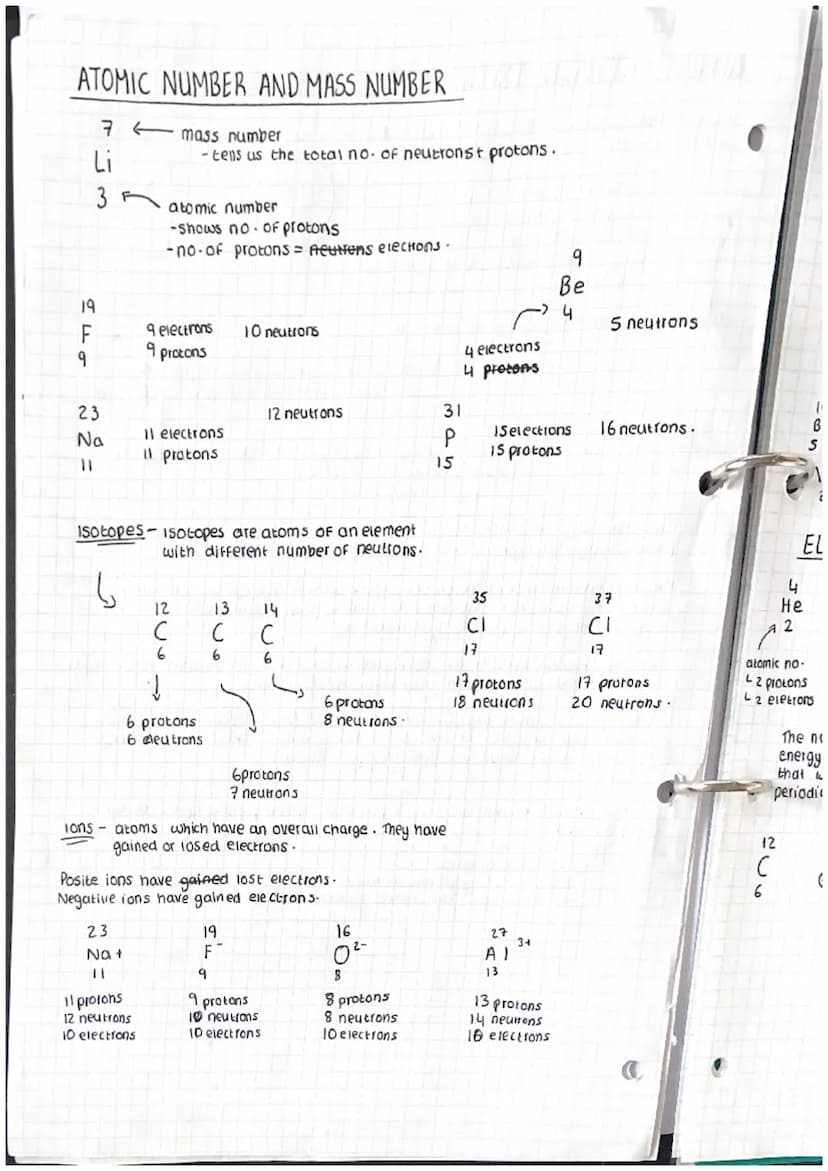 ATOMIC NUMBER AND MASS NUMBER
7 ← mass number
- tells us the total no. of neutrons + protons.
Li
3 atomic number
- shows no. of protons
- no. of protons = neutrons electrons.
9
Be
4
5 neutrons
4 electrons
4 protons
19
F
9
9 electrons
9 protons
10 neutrons
23
Na
11
11 electrons
11 protons
12 neutrons
31
P
15
15 electrons
15 protons
16 neutrons.
Isotopes - isotopes are atoms of an element
with different number of neutrons.
12
C
6
13
C
6
14
C
6
6 protons
6 neutrons
6 protons
7 neutrons
6 protons
8 neutrons.
35
Cl
17
17 protons
18 neutrons
37
Cl
17
17 protons
20 neutrons.
Ions - atoms which have an overall charge. They have
gained or losed electrons.
Posite ions have gained lost electrons.
Negative ions have gained electrons.
23
Na+
11
11 protons
12 neutrons
10 electrons
19
F-
9
9 protons
10 neutrons
10 electrons
16
O2-
8
8 protons
8 neutrons
10 electrons
27
Al 3+
13
13 protons
14 neutrons
10 electrons
B
5
EL
4
He
2
atomic no.
2 protons
2 eletrons
The
energy
that
periodic
12
C
6